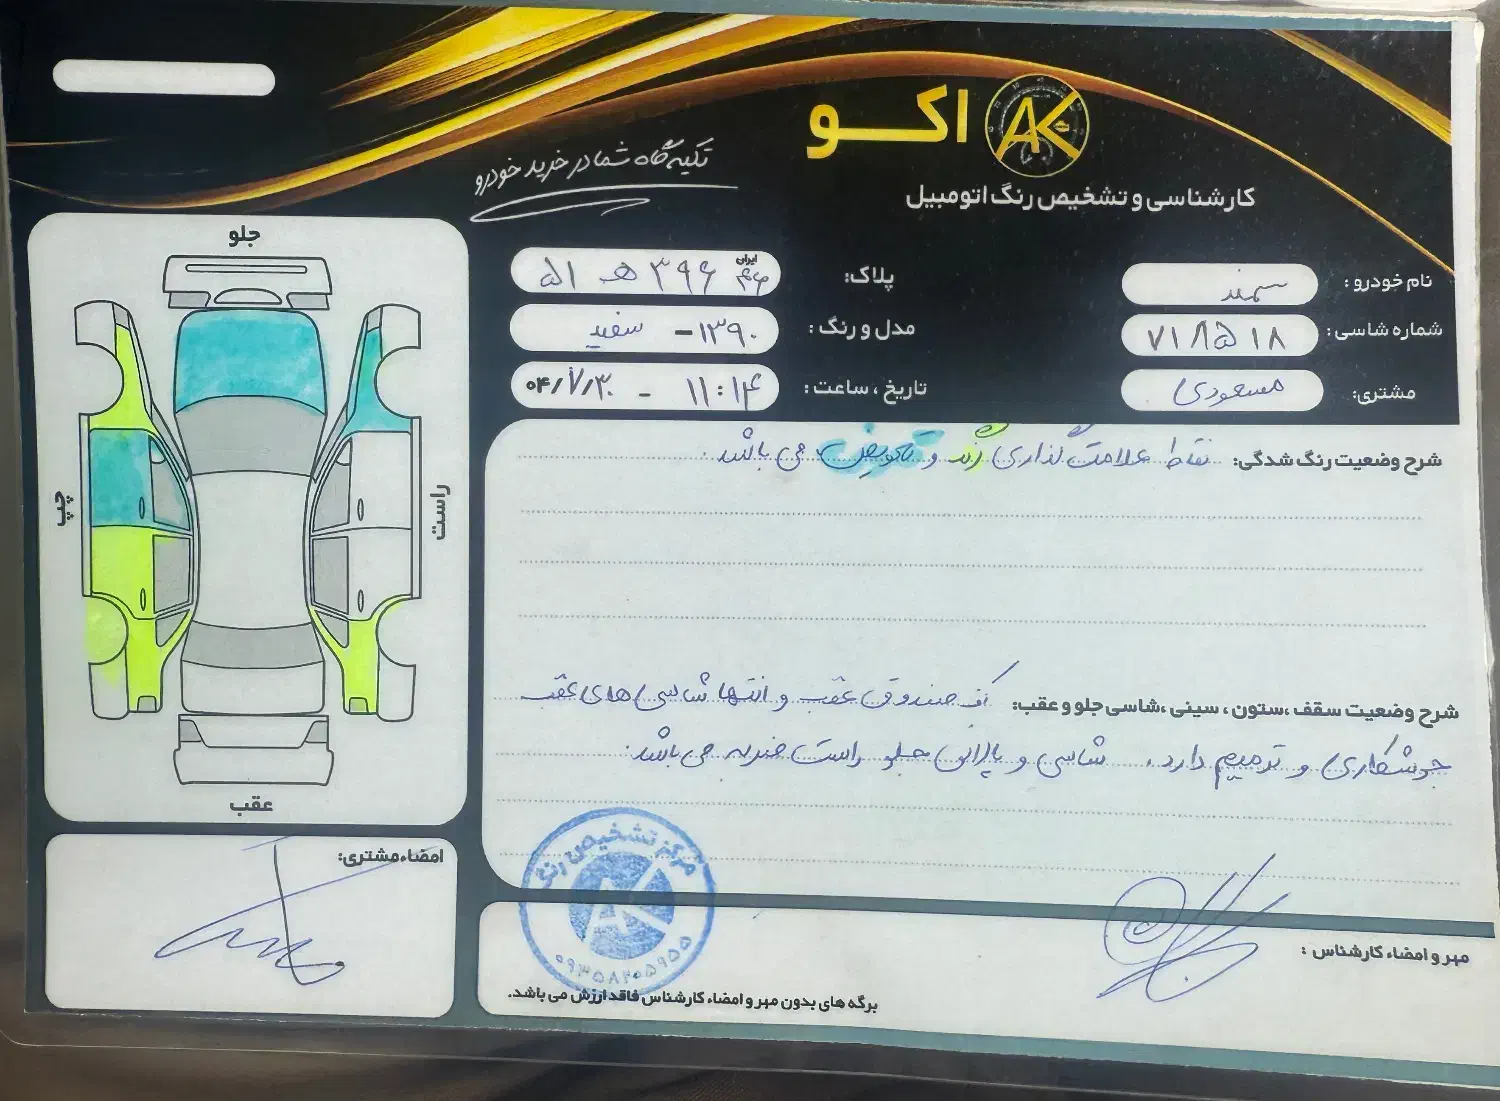 اکو
AK
کارشناسی و تشخیص رنگ اتومبیل
تکیه گاه شما در خرید خودرو
نام خودرو : سمند
پلاک: ۵۱ هـ ۳۹۶ ایران ۴۶
شماره شاسی: ۷۱۸۵۱۸
مدل و رنگ : ۱۳۹۰ - سفید
مشتری: مسعودی
تاریخ ، ساعت : ۱۱:۱۴ - ۰۴/۷/۳۰
جلو
چپ
راست
عقب
شرح وضعیت رنگ شدگی: نقاط علامت گذاری رنگ و تعویض می باشد.
شرح وضعیت سقف ،ستون ، سینی ،شاسی جلو و عقب: کف صندوق عقب و انتها شاسی های عقب
جوشکاری و ترمیم دارد. شاسی و پالانی جلو راست ضربه می باشد.
امضاء مشتری:
مهر و امضاء کارشناس :
مرکز تشخیص رنگ
AK
۰۹۳۵۸۲۰۵۹۵۵
برگه های بدون مهر و امضاء کارشناس فاقد ارزش می باشد.